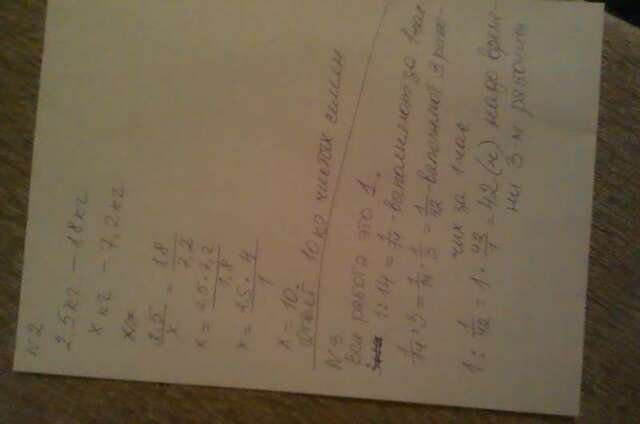 N2
2,5кг - 1,8кг
x кг - 7,2кг
x=
2,5/x = 1,8/7,2
x = 2,5·7,2/1,8
x = 2,5·4/1
x = 10,
Ответ 10 кг чистых семян
N3
Вся работа это 1.
1:14 = 1/14 - выполняют за 1 час
1/14 : 3 = 1/14 · 1/3 = 1/42 - выполняют 3 рабо-
чих за 1 час
1 : 1/42 = 1 · 42/1 = 42 (ч) надо време-
ни 3-м рабочим